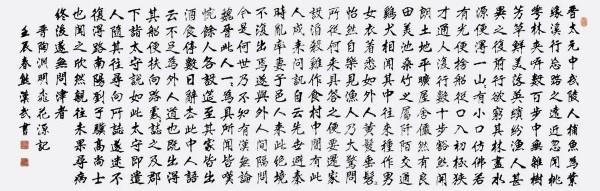 晋太元中武陵人捕魚為業
緣溪行忘路之遠近忽逢桃
花林夾岸數百步中無雜樹
芳草鮮美落英繽紛漁人甚
異之復前行欲窮其林林盡水
源便得一山山有小口仿佛若
有光便捨船從口入初極狹
才通人復行數十步豁然開
朗土地平曠屋舍儼然有良
田美池桑竹之屬阡陌交通
鷄犬相聞其中往來種作男
女衣著悉如外人黄髮垂髫
並怡然自樂見漁人乃大驚問
所從來具答之便要還家
設酒殺雞作食村中聞有此
人咸來問訊自云先世避秦
時亂率妻子邑人來此絕境
不復出焉遂與外人間隔問
今是何世乃不知有漢無論
魏晋此人一一為具言所聞皆嘆
惋餘人各復延至其家皆出
酒食停數日辭去此中人語
云不足為外人道也既出得
其船便扶向路處處誌之及郡
下詣太守說如此太守即遣
人隨其往尋向所誌遂迷不
復得路南陽劉子驥高尚士
也聞之欣然親往未果尋病
終後遂無問津者
晋陶淵明桃花源記
壬辰春熊漢武書